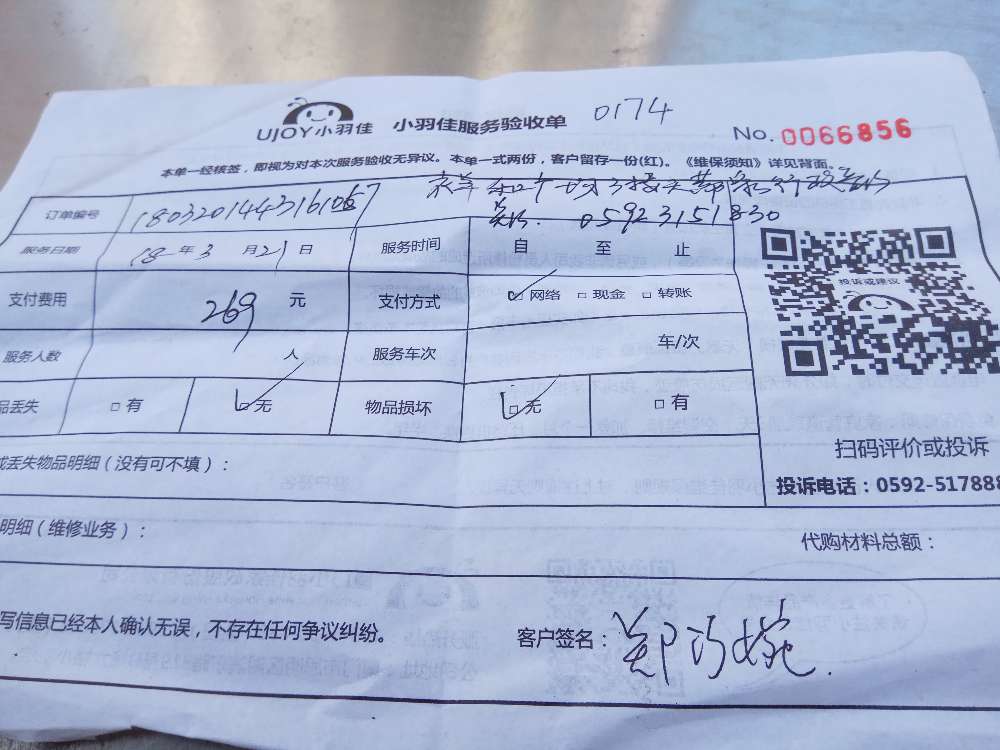 UJOY小羽佳 小羽佳服务验收单 0174
No. 0066856
本单一经核签，即视为对本次服务验收无异议。本单一式两份，客户留存一份(红)。《维保须知》详见背面。
订单编号
05923151830
服务日期 18 年 3 月 21 日 服务时间 自 至 止
支付费用 269 元 支付方式 网络 □ 现金 □ 转账
投诉或建议
服务人数 人 服务车次 车/次
品丢失 □ 有 □无 物品损坏 □无 □ 有
扫码评价或投诉
或丢失物品明细（没有可不填）：
投诉电话：0592-517888
明细（维修业务）：
代购材料总额：
写信息已经本人确认无误，不存在任何争议纠纷。 客户签名：郑巧婉